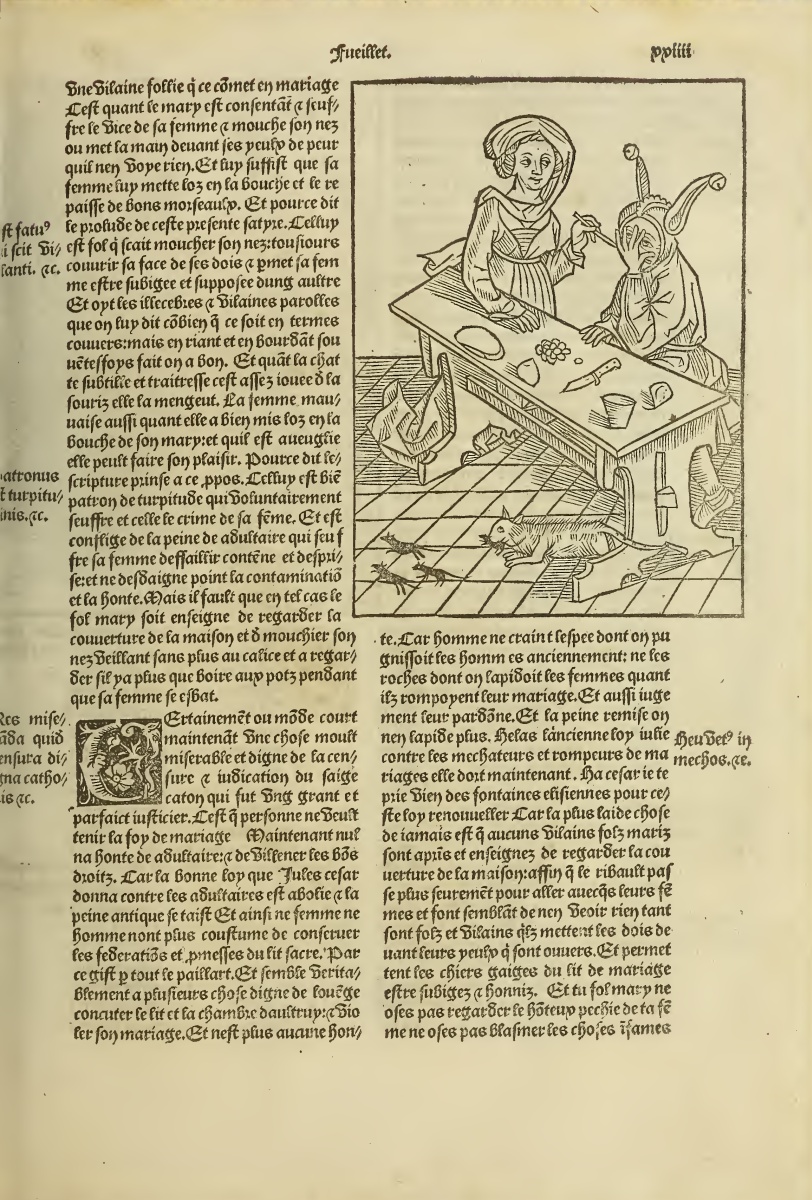 Fueillet. xxiiii
Une vilaine follie q̃ ce cõmet en mariage
Cest quant le mary est consentãt ⁊ seuf/
fre le vice de sa femme ⁊ mouche son nez
ou met la main deuant ses yeulx de peur
quil nen voye rien. Et luy suffist que sa
femme luy mette loz en la bouche et le re
paisse de bons morseaulx. Et pource dit
le profũde de ceste presente satyre. Celluy
est fol q̃ scait moucher son nez: tousiours
couurir sa face de ses dois ⁊ ꝑmet sa fem
me estre subigee et supposee dung aultre
Et oyt les illecebres ⁊ vilaines parolles
que on luy dit cõbien q̃ ce soit en termes
couuers: mais en riant et en bourdãt sou
uẽteffoys fait on a bon. Et quãt la chat
te subtille et traitresse cest assez iouee d̃ la
souriz elle la mengeut. La femme mau/
uaise aussi quant elle a bien mis loz en la
bouche de son mary: et quil est aueuglie
elle peult faire son plaisir. Pource dit le/
scripture prinse a ce ,ppos. Celluy est biẽ
patron de turpitude qui voluntairement
seuffre et celle le crime de sa fẽme. Et est
conslige de la peine de adultaire qui seuf
fre sa femme deffaillir contẽne et despri/
se: et ne desdaigne point la contaminatiõ
et la honte. Mais il fault que en tel cas le
fol mary soit enseigne de regarder la
couuerture de la maison et d̃ mouchier son
nez veillant sans plus au calice et a regar/
der sil ya plus que boire aux potz pendant
que sa femme se esbat.
st fatuꝰ
i scit di/
lanti. ⁊c.
atronus
t turpitu/
inis. ⁊c.
CErtainemẽt ou mõde court
maintenãt vne chose moult
miserable et digne de la cen/
sure ⁊ iudication du saige
caton qui fut vng grant et
parfaict iusticier. Cest q̃ personne ne veult
tenir la foy de mariage Maintenant nul
na honte de adultaire: ⁊ de villener les bõs
droitz. Car la bonne loy que Jules cesar
donna contre les adultaires est abolie ⁊ la
peine antique se taist Et ainsi ne femme ne
homme nont plus coustume de conseruer
les federatiõs et ,pmesses du lit sacre. Par
ce gist ꝑ tout le paillart. Et semble verita/
blement a plusieurs chose digne de louẽge
concuter le lit et la chambre daultruy: ⁊ vio
ler son mariage. Et nest plus aucune hon/
Res mise/
ãda quid
ensura di/
gna catho/
is ⁊c.
te. Car homme ne craint lespee dont on pu
gnissoit les hommes anciennement: ne les
roches dont on lapidoit les femmes quant
ilz rompoyent leur mariage. Et aussi iuge
ment leur pardõne. Et la peine remise on
nen lapide plus. Helas lãncienne loy iulie
contre les mechateurs et rompeurs de ma
riages elle dort maintenant. Ha cesar ie te
prie vien des fontaines elisiennes pour ce/
ste loy renouueller Car la plus laide chose
de iamais est q̃ aucuns vilains folz mariz
sont apris et enseignez de regarder la cou
uerture de la maison: affin q̃ le ribault pas
se plus seuremẽt pour aller auecq̃s leurs fẽ
mes et font semblãt de nen veoir rien tant
sont folz et vilains q̃lz mettent les dois de
uant leurs yeulx q̃ sont ouuers. Et permet
tent les chiers gaiges du lit de mariage
estre subigez ⁊ honniz. Et tu fol mary ne
oses pas regarder le hõteux pechie de ta fẽ
me ne oses pas blasmer les choses ĩfames
Heu vetꝰ in
mechos. ⁊c.